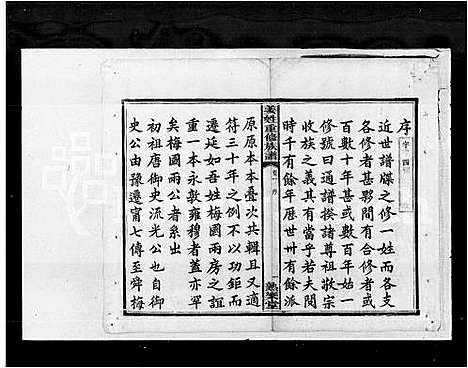 序
近世譜牒之修一姓而各支
各修者甚夥間有合修者或
百數十年甚或數百年始一
修號曰通譜揆諸尊祖敬宗
收族之義具有當乎若夫閱
時千有餘年歷世卅有餘派
姜姓重修族譜
卷一 序
一
熟樂堂
原原本本疊次共輯且又適
符三十年之例不以功鉅而
遷延如吾姓梅國兩房之誼
重一本永敦雍穆者蓋亦罕
矣梅國兩公者系出
初祖唐御史流光公也自御
史公由豫遷甯七傳至舜梅